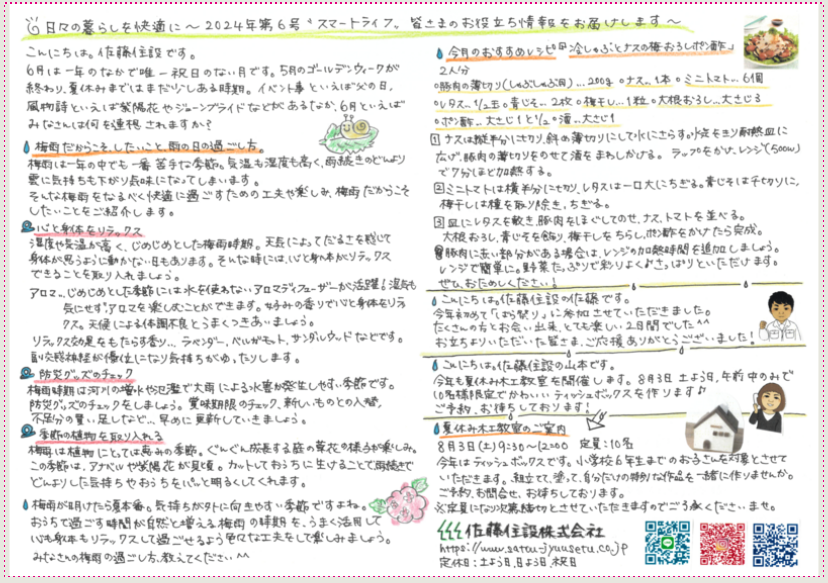 日々の暮らしを快適に～2024年第6号 "スマートライフ" 皆さまのお役立ち情報をお届けします～
こんにちは。佐藤住設です。
6月は一年のなかで唯一祝日のない月です。5月のゴールデンウィークが
終わり、夏休みまではまだ少しある時期。イベント事といえば父の日、
風物詩といえば紫陽花やジューンブライドなどがあるなか、6月といえば
みなさんは何を連想されますか？
梅雨だからこそ、したいこと、雨の日の過ごし方。
梅雨は一年の中でも一番苦手な季節。気温も湿度も高く、雨続きのどんより
雲に気持ちも下がり気味になってしまいます。
そんな梅雨をなるべく快適に過ごすための工夫や楽しみ、梅雨だからこそ
したいことをご紹介します。
心と身体をリラックス
湿度や気温が高く、じめじめとした梅雨時期。天気によってだるさを感じて
身体が思うように動かない日もあります。そんな時には、心と身体がリラックス
できることを取り入れましょう。
アロマ…じめじめとした季節には水を使わないアロマディフューザーが活躍！湿気も
気にせずアロマを楽しむことができます。お好みの香りで心と身体をリラ
クス。天候による体調不良とうまくつきあいましょう。
リラックス効果をもたらす香り…ラベンダー、ベルガモット、サンダルウッドなどです。
副交感神経が優位になり気持ちがゆったりします。
防災グッズのチェック
梅雨時期は河川の増水や氾濫で大雨による水害が発生しやすい季節です。
防災グッズのチェックをしましょう。賞味期限のチェック、新しいものとの入替、
不足分の買い足しなど…早めに更新していきましょう。
季節の植物を取り入れる
梅雨は植物にとっては恵みの季節。ぐんぐん成長する庭の草花の様子が楽しみ。
この季節は、アナベルや紫陽花が見頃。カットしておうちに生けることで雨続きで
どんよりした気持ちやおうちをパっと明るくしてくれます。
梅雨が明けたら夏本番。気持ちがソトに向きやすい季節ですよね。
おうちで過ごす時間が自然と増える梅雨の時期を、うまく活用して
心も身体もリラックスして過ごせるよう色々な工夫をして楽しみましょう。
みなさんの梅雨の過ごし方、教えてください^^
今月のおすすめレシピ 「冷しゃぶとナスの梅おろしポン酢」
2人分
豚肉の薄切り(しゃぶしゃぶ用)…200g ナス…1本 ミニトマト…6個
レタス…1/2玉 青じそ…2枚 梅干し…1粒 大根おろし…大さじ3
ポン酢…大さじ1と1/2 酒…大さじ1
1 ナスは縦半分に切り、斜め薄切りにして水にさらす。水気をきり耐熱皿に
広げ、豚肉の薄切りをのせて酒をまわしかける。ラップをかけ、レンジ(500W)
で7分ほど加熱する。
2 ミニトマトは横半分に切り、レタスは一口大にちぎる。青じそは千切りに、
梅干しは種を取り除き、ちぎる。
3 皿にレタスを敷き、豚肉をほぐしてのせ、ナス、トマトを並べる。
大根おろし、青じそを飾り、梅干しをちらし、ポン酢をかけたら完成。
豚肉に赤い部分がある場合は、レンジの加熱時間を追加しましょう。
レンジで簡単に。野菜たっぷりで彩りよく、さっぱりといただけます。
ぜひ、おためしください！
こんにちは。佐藤住設の佐藤です。
今年初めて「しばら祭り」に参加させていただきました。
たくさんの方とお会い出来、とても楽しい2日間でした^^
お立ちよりいただいた皆さま、ご応援ありがとうございました！
こんにちは。佐藤住設の山本です。
今年も夏休み木工教室を開催します。8月3日土よう日、午前中のみで
10名様限定でかわいいティッシュボックスを作ります♪
ご予約、お待ちしております！
夏休み木工教室のご案内
8月3日(土)9:30～12:00 定員:10名
今年はティッシュボックスです。小学校6年生までのお子さんを対象とさせて
いただきます。組立て、塗って、自分だけの特別な作品を一緒に作りませんか。
ご予約、お問合せ、お待ちしております。
※定員になり次第締切とさせていただきますのでご了承くださいませ。
佐藤住設株式会社
https://www.satou-jyuusetu.co.jp
定休日:土よう日、日よう日、祝日